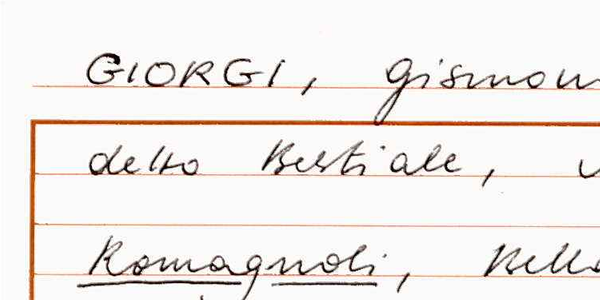 GIORGI, Gismon
detto Bestiale,
Romagnoli,